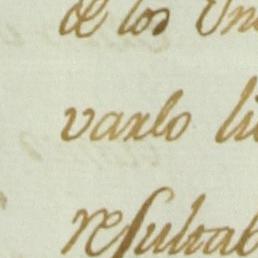 de los Un
varlo li
resultab